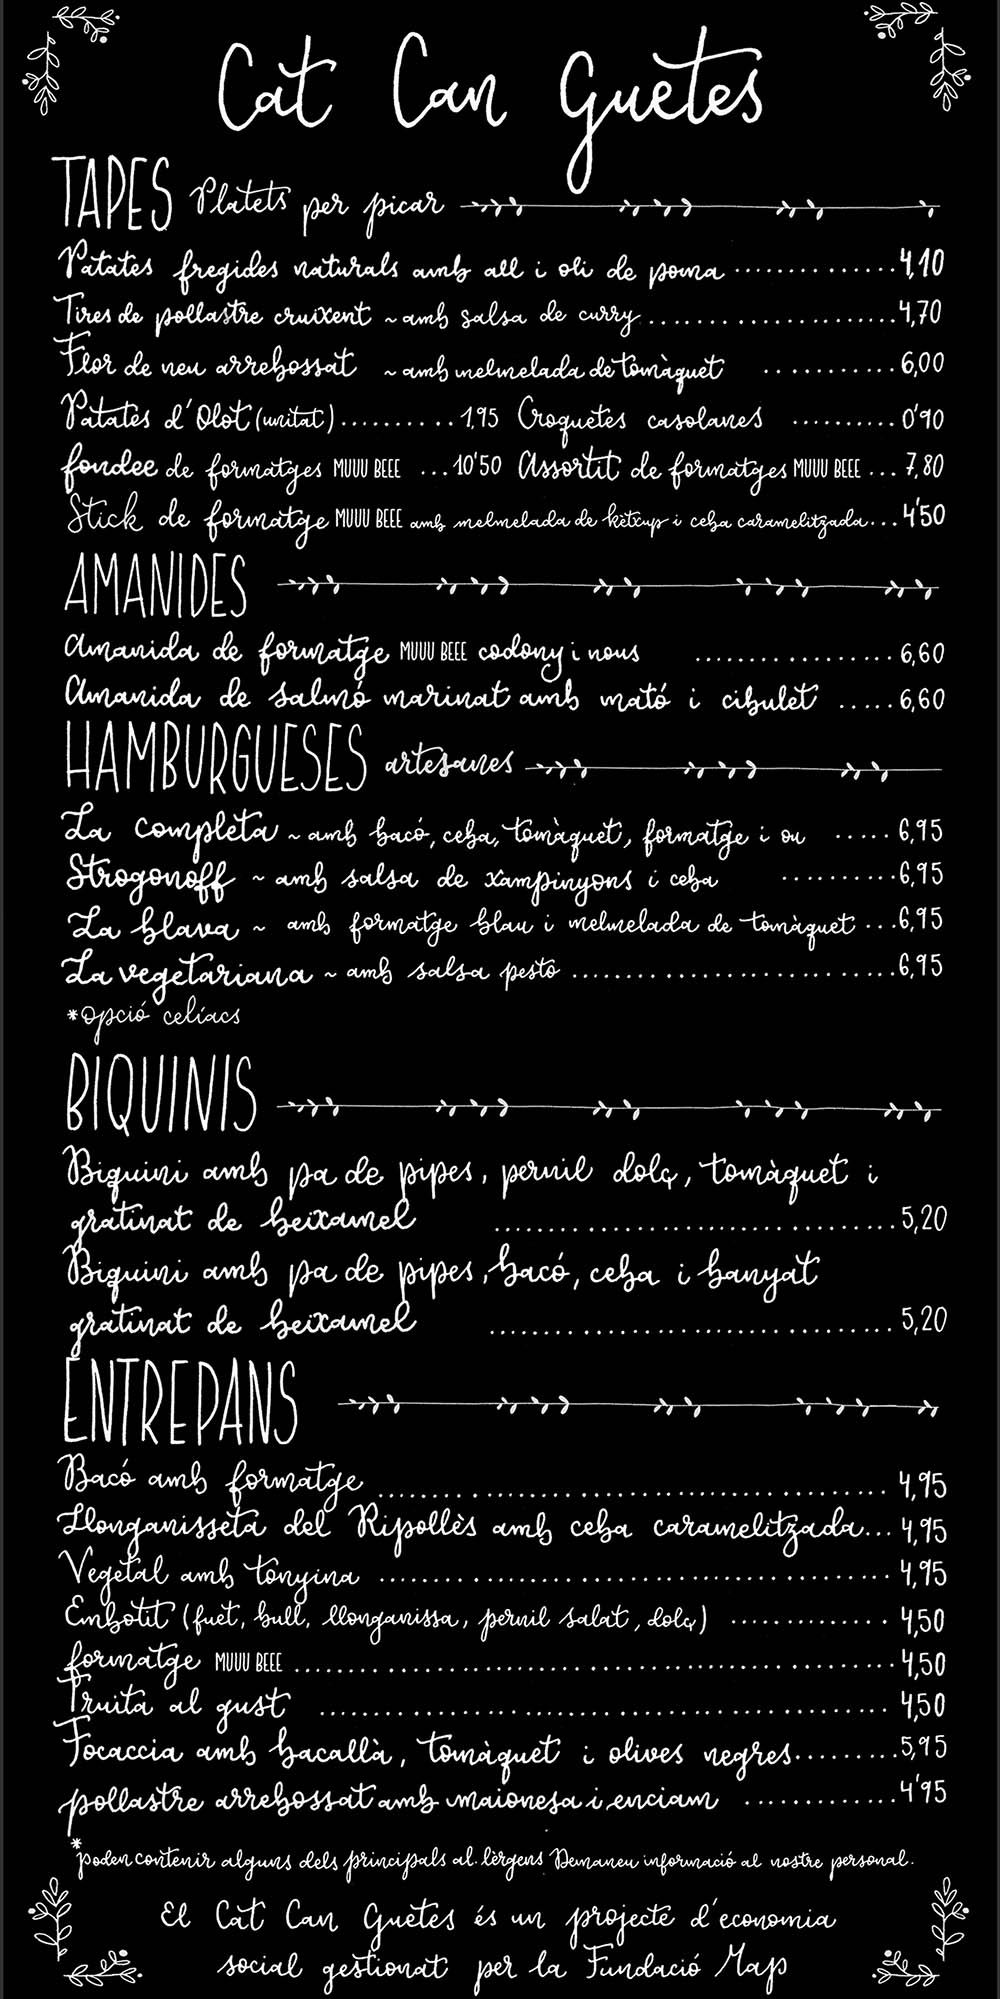 Cat Can Guetes
TAPES Platets per picar
Patates fregides naturals amb all i oli de poma ............. 4,10
Tires de pollastre cruixent ~amb salsa de curry ..................... 4,70
Flor de neu arrebossat ~amb melmelada de tomàquet ........... 6,00
Patates d'Olot (unitat) .......... 1,95 Croquetes casolanes ......... 0'90
fondee de formatges MUUU BEEE ... 10'50 Assortit de formatges MUUU BEEE ... 7,80
Stick de formatge MUUU BEEE amb melmelada de kètxup i ceba caramelitzada ... 4'50
AMANIDES
Amanida de formatge MUUU BEEE codony i nous ................ 6,60
Amanida de salmó marinat amb mató i cibulet ..... 6,60
HAMBURGUESES artesanes
La completa ~ amb bacó, ceba, tomàquet, formatge i ou ..... 6,95
Strogonoff ~ amb salsa de xampinyons i ceba .......... 6,95
La blava ~ amb formatge blau i melmelada de tomàquet ... 6,95
La vegetariana ~ amb salsa pesto ........................... 6,95
*Opció celíacs
BIQUINIS
Biquini amb pa de pipes, pernil dolç, tomàquet i
gratinat de beixamel .................................. 5,20
Biquini amb pa de pipes, bacó, ceba i banyat
gratinat de beixamel .................................. 5,20
ENTREPANS
Bacó amb formatge .......................................... 4,95
Llonganisseta del Ripollès amb ceba caramelitzada... 4,95
Vegetal amb tonyina .......................................... 4,95
Embotit (fuet, bull, llonganissa, pernil salat, dolç) ............. 4,50
formatge MUUU BEEE .................................................. 4,50
Truita al gust ............................................... 4,50
Focaccia amb bacallà, tomàquet i olives negres......... 5,95
pollastre arrebossat amb maionesa i enciam ............. 4'95
*poden contenir alguns dels principals al.lèrgens Demaneu informació al nostre personal.
El Cat Can Guetes és un projecte d'economia
social gestionat per la Fundació Map